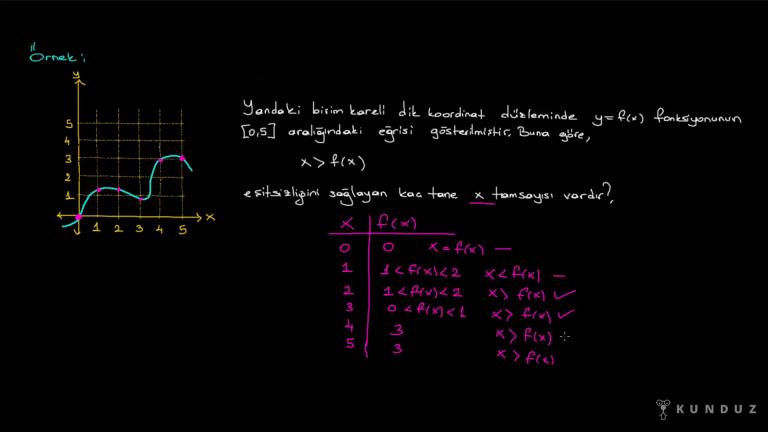 Örnek:
y
5
4
3
2
1
1 2 3 4 5 x
Yandaki birim kareli dik koordinat düzleminde y=f(x) fonksiyonunun
[0,5] aralığındaki eğrisi gösterilmiştir. Buna göre,
x>f(x)
eşitsizliğini sağlayan kaç tane x tamsayısı vardır?
x f(x)
0 0 x=f(x) —
1 1<f(x)<2 x<f(x) —
2 1<f(x)<2 x>f(x) ✓
3 0<f(x)<1 x>f(x) ✓
4 3 x>f(x)
5 3 x>f(x)
KUNDUZ